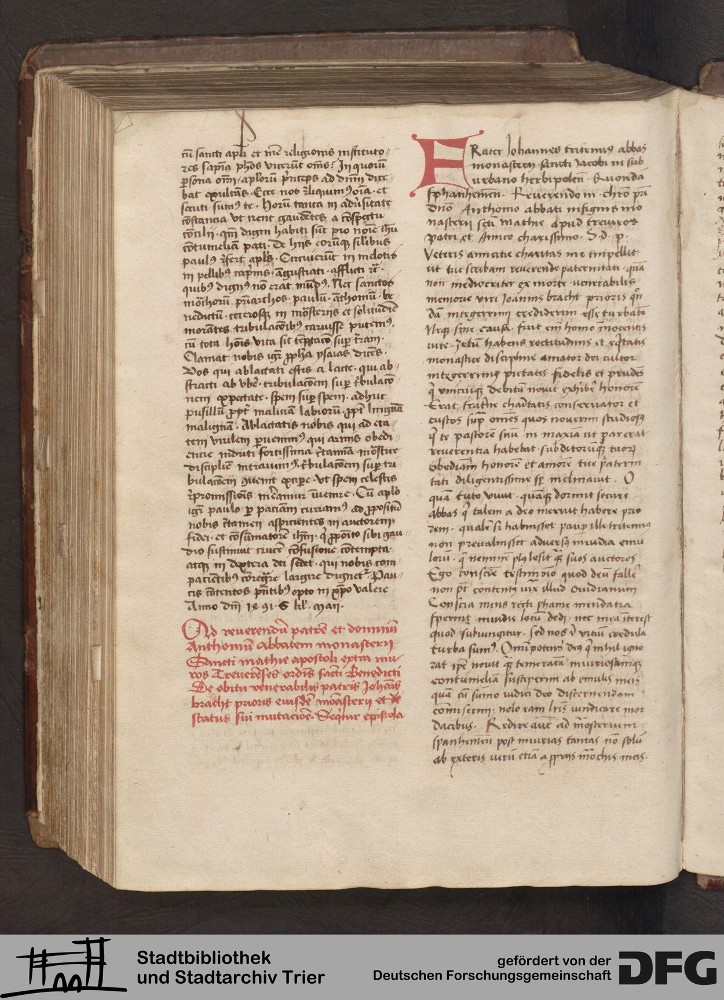 cū sancti apli et nr̄e religionis instituto
res sapīa phos vicerūt oms? In quorū
psona om̄ aplorū prīceps ad dn̄m dice
bat exultās. Ecce nos reliquimꝰ oīa. et
secuti sumꝰ te. Horū tanta in aduersitate
cōstancia vt irent gaudētes a cōspectu
concilij. qm̄ digni habiti sūt pro noīe ihū
cōtumeliā pati. De hijs eorūqꝫ silibus
paulꝰ refert aplꝰ. Circuierūt in melotis
in pellibꝰ caprinis, angustiati, afflicti
quibꝰ dignꝰ nō erat mūdꝰ. Nec sanctos
monchorū priarchos, paulū, ātħomiū, be
nedictū, ceterosqꝫ in mōsterijs et solitudīe
morātes tribulacōibꝰ caruisse putemꝰ,
cū tota hoīs vita sit tēptaco sup terram.
Clamat nobis igr ppha ysaias dicēs.
Vos qui ablactati estis a lacte, qui abs
tracti ab vbere. tribulacōem sup tribulaco
nem expectate. spem sup spem. adhuc
pusillū ppter maliciā labiorū, ppt linguā
malignā. Ablactatis nobis qui ad eta
tem virilem puenimꝰ, qui armis obedi
encie induti fortissima certamīa mōstice
discipline intrauimꝰ, tribulacōem sup tri
bulacōem quenit excipe. vt spem celestis
repromissionis mereamur inuenire. Cū aplo
igr paulo p paciam curramꝰ ad ppositū
nobis certamen aspicientes in auctorem
fidei. et cōsumatorem ihm. q pposito sibi gau
dio sustinuit crucē cōfusione cōtempta
atqꝫ in dextera dei sedet. qui nobis com
patientibꝰ coregnare largire dignetr Pau
cis cōtentos pntibꝰ opto in xpo valere
Anno dn̄i 1491. 6 kl. maij.
Ad reuerendū patrē et dominū
Anthoniū abbatem monasterij
Sancti mathie apostoli extra mu
ros Treuerēses ordīs sacti Benedicti
De obitu venerabilis patris Johānis
bracht prioris eiusdē mōasterij et de
status sui mutacioē. Seqitur epistola
Frater Johannes tritemius abbas
monasterij sancti Jacobi in sub
urbano herbipolen. Quondā
spanhemen. Reuerendo in christo pr̄i
dn̄o Anthonio abbati insignis mo
nasterij scti mathie apud treueros
patri et Amico charissimo. S. d. p.
Veteris amicitie charitas me impellit
vt tue scribam reuerende paternitati. quā
non mediocriter ex morte venerabilis
memorie viri Joannis bracht prioris qn̄
dā integerrimi crediderim esse turbatā
Neqꝫ sine causa. fuit enim homo innocentis
vite, zelum habens rectitudinis et regularis
monastice discipline amator dei cultor
integerrime pietatis fidelis et prudēs
q vnicuiqꝫ debitū nouit exhibere honorē
Erat frat̄ne charitatis conseruator et
custos sup omēs quos nouerim studiosꝰ
q te pastorē suū in maxīa vt par erat
reuerentia habebat. subditorūqꝫ tuorū
obediām honorē et amorē tue patern
tati diligentissime semp inclinauit. O
quā tuto viuit. quāqꝫ dormit secure
abbas q talem a deo meruit habere prio
rem. qualē si habuisset paup ille tritemius
non preualuisset aduersꝰ inuidia emu
lorū. q neminē plꝰ lesit qꝫ suos auctores
Ego conscīe testimonio quod deū falle
non pt contentꝰ vix illud Ouidianum
Conscia mens recti phame mendatia
spernit. inuidie locū dedi. nec mea interest
quod subiungitur, sed nos in vitiū credula
turba sumꝰ. Omipotens deꝰ q nihil igno
rat ipe nouit qꝫ temerariā iniuriosamqꝫ
contumeliā sustinuerim ab emulis meis
quā cū sūmo iudici deo discernendam
comiserim. nolo eam lris iudicare mor
dacibus. Redire autē ad mōsterium
spanhemen post iniurias tantas nō solū
ab exteris verū etiā a pprijs mōchis meis.
Stadtbibliothek
und Stadtarchiv Trier
gefördert von der
Deutschen Forschungsgemeinschaft
DFG